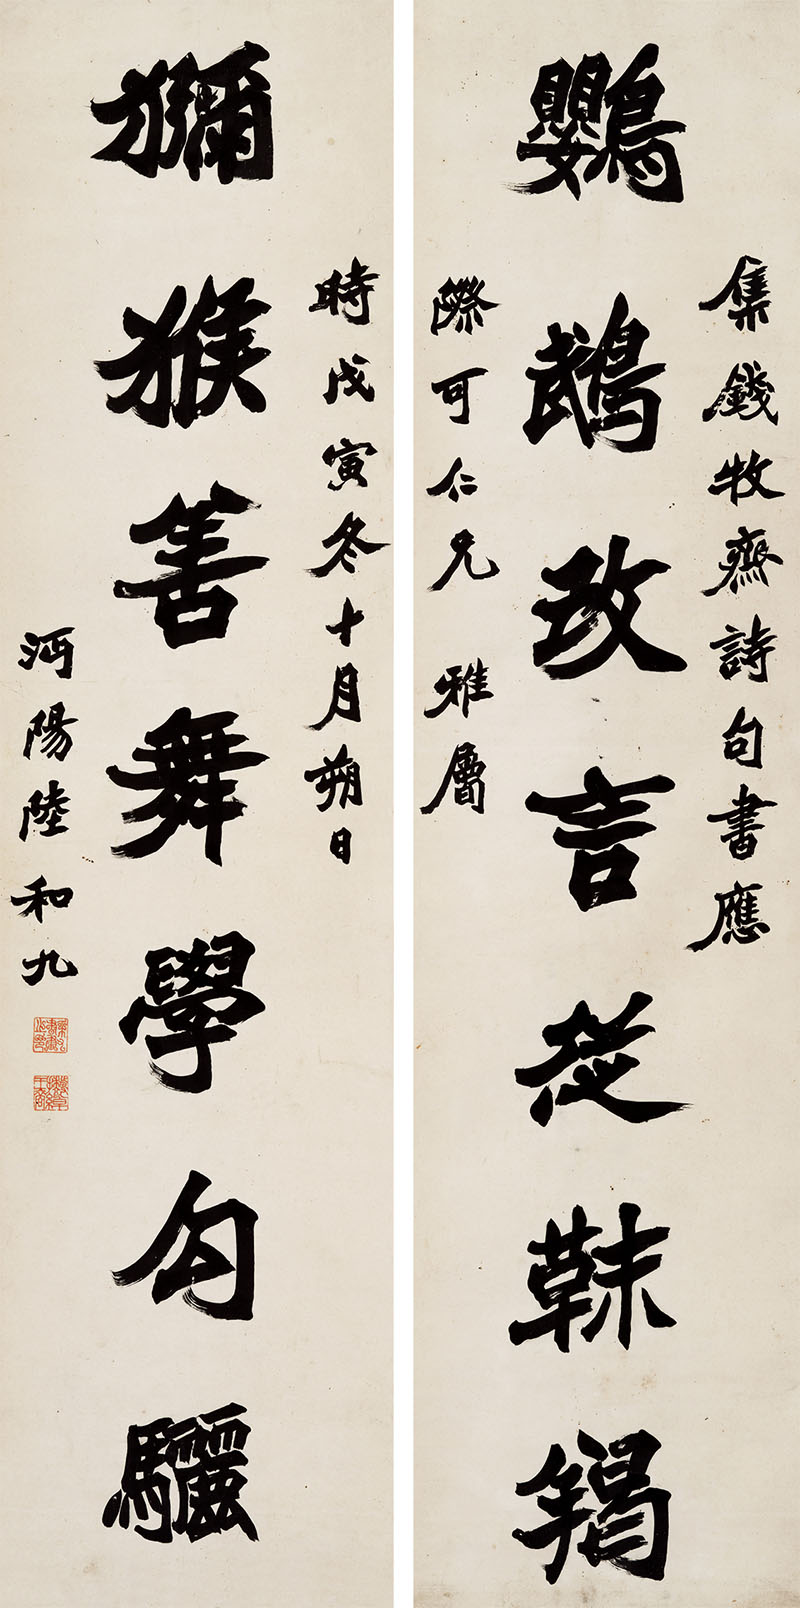 集錢牧齋詩句書應
鸚鵡改言從靺鞨
際可仁兄 雅屬
時戊寅冬十月朔日
獼猴善舞學勾驪
沔陽陸和九